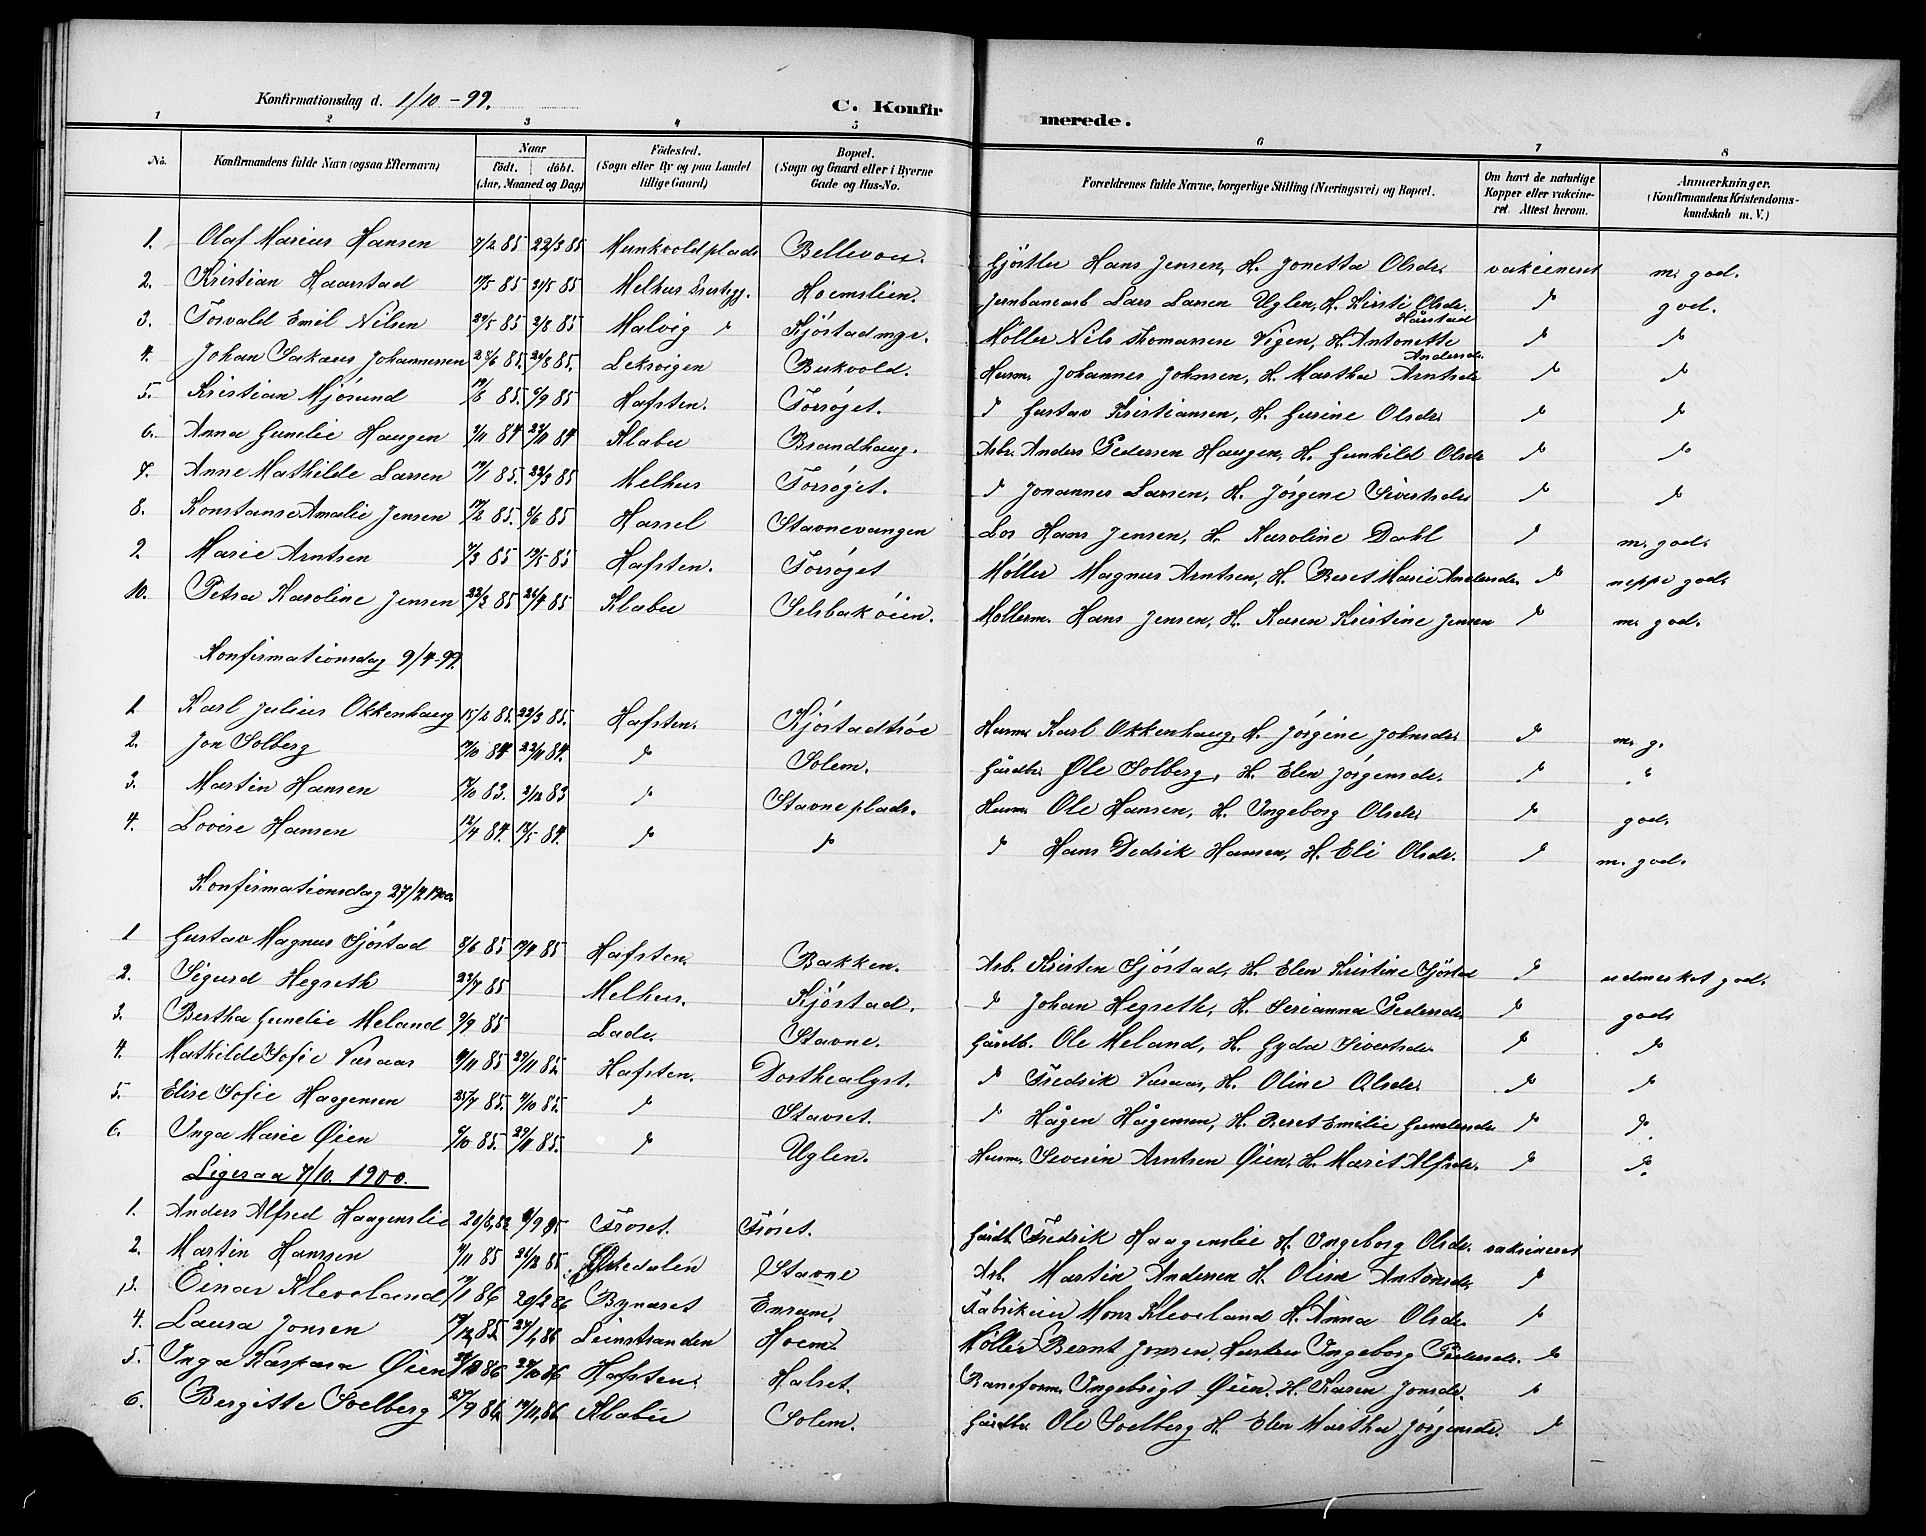 Konfirmationsdag d. 1/10 - 99.
C. Konfirmerede.
1 2 3 4 5 6 7 8
No. Konfirmandens fulde Navn (ogsaa Efternavn) Naar født. døbt. (Aar, Maaned og Dag) Fødested. (Sogn eller By og paa Landet tillige Gaard) Bopæl. (Sogn og Gaard eller i Byerne Gade og Hus-No. Forældrenes fulde Navne, borgerlige Stilling (Næringsvei) og Bopæl. Om havt de naturlige Kopper eller vakcineret. Attest herom. Anmærkninger. (Konfirmandens Kristendomskundskab m. V.)
1. Olaf Marius Hansen 7/2 85 22/3 85 Munkvoldplads Bellevou. Gjørtler Hans Jensen, H. Jonetta Olsdr. vakcineret m. god.
2. Kristian Haarstad 85 85 Melhus Hoemslien. Jernbanearb Lars Larsen Uglen, H. Kirsti Olsdr. Harstad " god.
3. Torvald Emil Nilsen 29/5 85 2/8 85 Malvig " Kjøstadmyr. Møller Nils Thomassen Vigen, H. Antonette Andersdr. " "
4. Johan Sakaus Johannessen 28/6 85. 85. Leksvigen Bukvold. Husm. Johannes Johnsen, H. Martha Arntsdr " "
5. Kristian Mjøsund 85. 6/9 85 Hafsten. Forsøget. " Gustav Kristiansen, H. Gurine Olsdr. " "
6. Anna Gunelie Haugen 2/11 84 23/11 84 Klæbu Brandhaug. Arb. Anders Pedersen Haugen, H. Gunhild Olsdr " "
7. Anne Mathilde Larsen 19/1 85. 22/3 85 Melhus Forsøget. " Johannes Larsen, H. Jørgine Sivertsdr " "
8. Konstanse Amalie Jensen 17/2 85. 3/6 85 Hassel Stavnevangen Los Hans Jensen, H. Karoline Dahl " m. god.
9. Marie Arntsen 7/3 85 17/5 85 Hafsten. Forsøget Møller Magnus Arntsen, H. Beret Marie Andersdr. " neppe god.
10. Petra Karoline Jensen 22/2 85 26/4 85 Klæbu Selsbakøien. Møllerm. Hans Jensen, H. Karen Kristine Jensen " m. god.
Konfirmationsdag 9/4-99.
1 Karl Julius Okkenhaug 15/2 85. 22/3 85. Hafsten. Kjøstadtrøe Husm. Karl Okkenhaug, H. Jørgine Johnsdr. " m. g.
2. Jon Solberg 19/10 84 23/11 84. " Solem. Gårdbr. Ole Solberg, H. Elen Jørgensdr. " "
3. Martin Hansen 17/10 83. 2/12 83 " Stavneplads. Husm. Ole Hansen, H. Ingeborg Olsdr. " god.
4. Lovise Hansen 12/4 84. 18/5 84. " " " Hans Dedrik Hansen, H. Eli Olsdr. " m. god.
Konfirmationsdag 27/4 1900.
1 Gustav Magnus Sjøstad 3/6 85 19/4 85 Hafsten. Bakken. Arb. Kristen Sjøstad, H. Elen Kristine Sjøstad " udmerket god.
2. Sigurd Hegseth 23/7 85 Melhus. Kjøstad. " Johan Hegseth, H. Serianna Pedersdr " god
3. Bertha Gunelie Meland 9/9 85 Lade. Stavne. Gårdb. Ole Meland, H. Gyda Sivertsdr. " "
4. Mathilde Sofie Væraas 9/11 85 29/11 85. Hafsten. Dorthealyst. " Fredrik Væraas, H. Oline Olsdr. " "
5. Elise Sofie Haagensen 25/7 85. 4/10 85. " Stavset. " Hågen Hågensen, H. Beret Emilie Gundersdr " "
6. Inga Marie Øien 6/10 85. 29/11 85. " Uglen. Husm. Severin Arntsen Øien, H. Marit Alfsdr. " "
Ligesaa 7/10. 1900.
1. Anders Alfred Haagenslie 20/8, 85 6/9 85 Trøset. Trøset. Gårdb. Fredrik Haagenslie H. Ingeborg Olsdr. vakcineret
2. Martin Hanssen 7/11 85 26/12 85. Ørkedalen Stavne Arb. Martin Andersen H. Oline Antonsdr "
3. Einar Kleveland 17/1 86 20/2 86 Bynæset Enrum. Fabrikeier Mons Kleveland H. Anna Olsdr. "
4. Laura Jonsen 17/12, 85. 24/1, 86 Leinstranden Hoem. Møller Bernt Jonsen, Hustru Ingeborg Pedersdr. "
5. Inga Kaspara Øien 86 86 Hafsten. Halset. Baneform. Ingebrigt Øien. H. Karen Jonsdr. "
6. Bergitte Soelberg 27/9 86. 14/11, 86 Klæbu Solem. Gårdbr. Ole Soelberg H. Elen Martha Jørgensdr. "